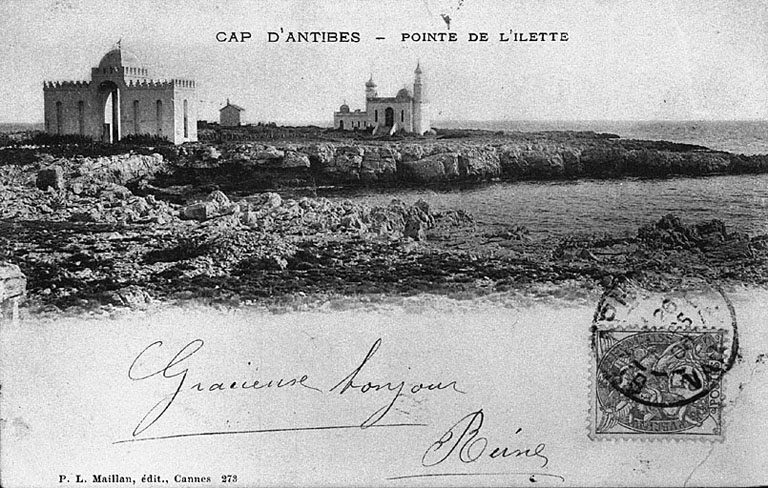 CAP D'ANTIBES – POINTE DE L'ILETTE
Gracieuse bonjour
Reine
P. L. Maillan, édit., Cannes 273